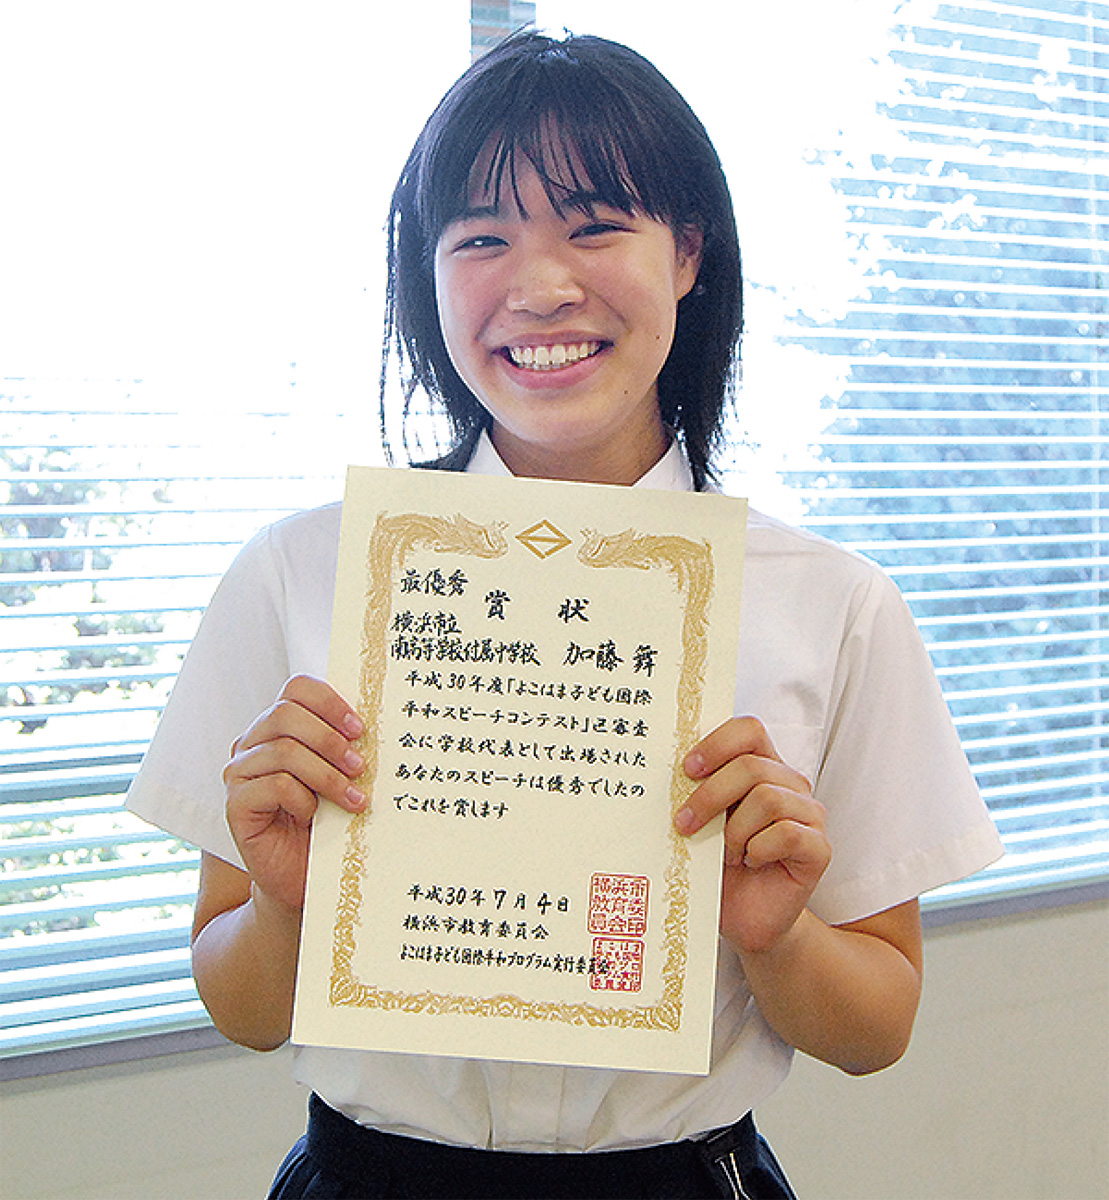 最優秀
賞 状
横浜市立
南高等学校付属中学校 加藤 舞
平成30年度「よこはま子ども国際
平和スピーチコンテスト」区審査
会に学校代表として出場された
あなたのスピーチは優秀でしたの
でこれを賞します
平成30年7月4日
横浜市教育委員会
よこはま子ども国際平和プログラム実行委員会
横浜市
教育委
員会印